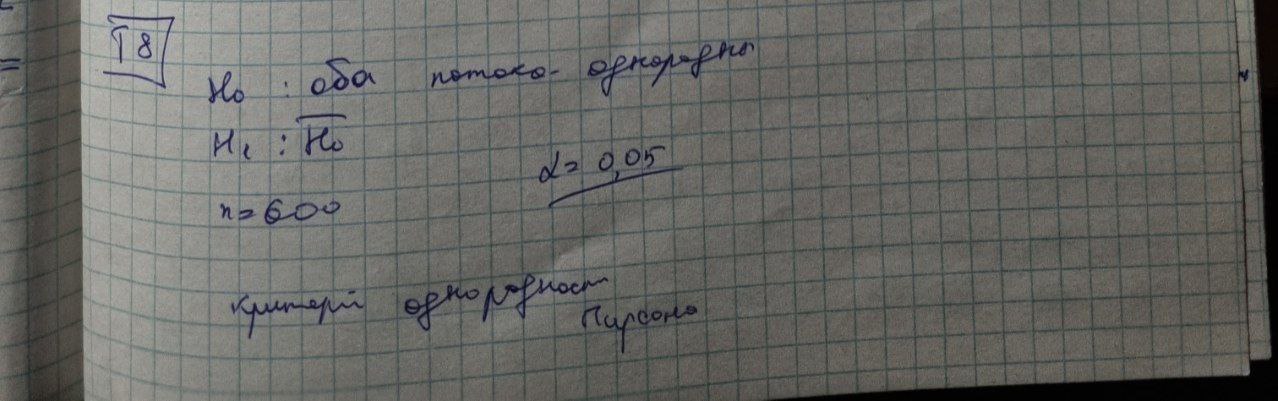 T 8
H₀ : оба потока однородны
H₁ : H̅₀
α = 0,05
n = 600
Критерий однородност
Пирсона